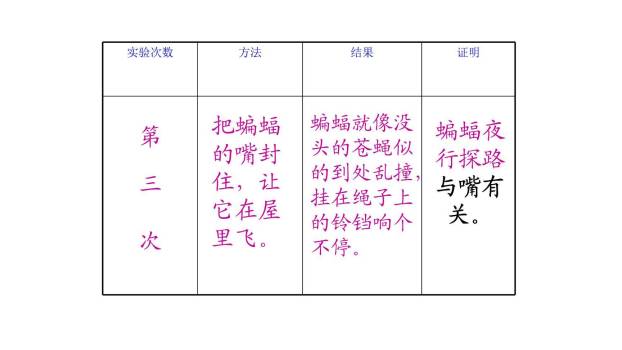 实验次数
方法
结果
证明
第
三
次
把蝙蝠
的嘴封
住，让
它在屋
里飞。
蝙蝠就像没
头的苍蝇似
的到处乱撞，
挂在绳子上
的铃铛响个
不停。
蝙蝠夜
行探路
与嘴有
关。